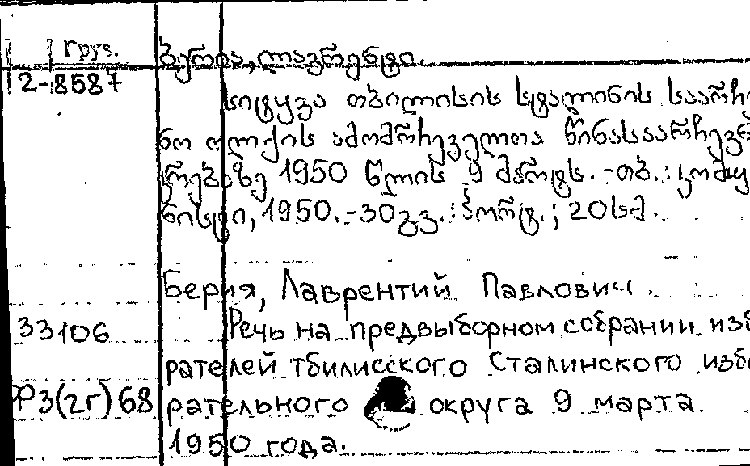 Груз. ბერია, ლავრენტი.
12-8587
სიტყვა თბილისის სტალინის საარჩე
ნო ოლქის ამომრჩეველთა წინასაარჩევნ
რებაზე 1950 წლის 9 მარტს. - თბ. : კომუ
ნისტი, 1950. - 30 გვ. : პორტ. ; 20 სმ.
Берия, Лаврентий Павлович.
33106 Речь на предвыборном собрании изб
рателей Тбилисского Сталинского изби
Р3(2г)68 рательного округа 9 марта
1950 года.